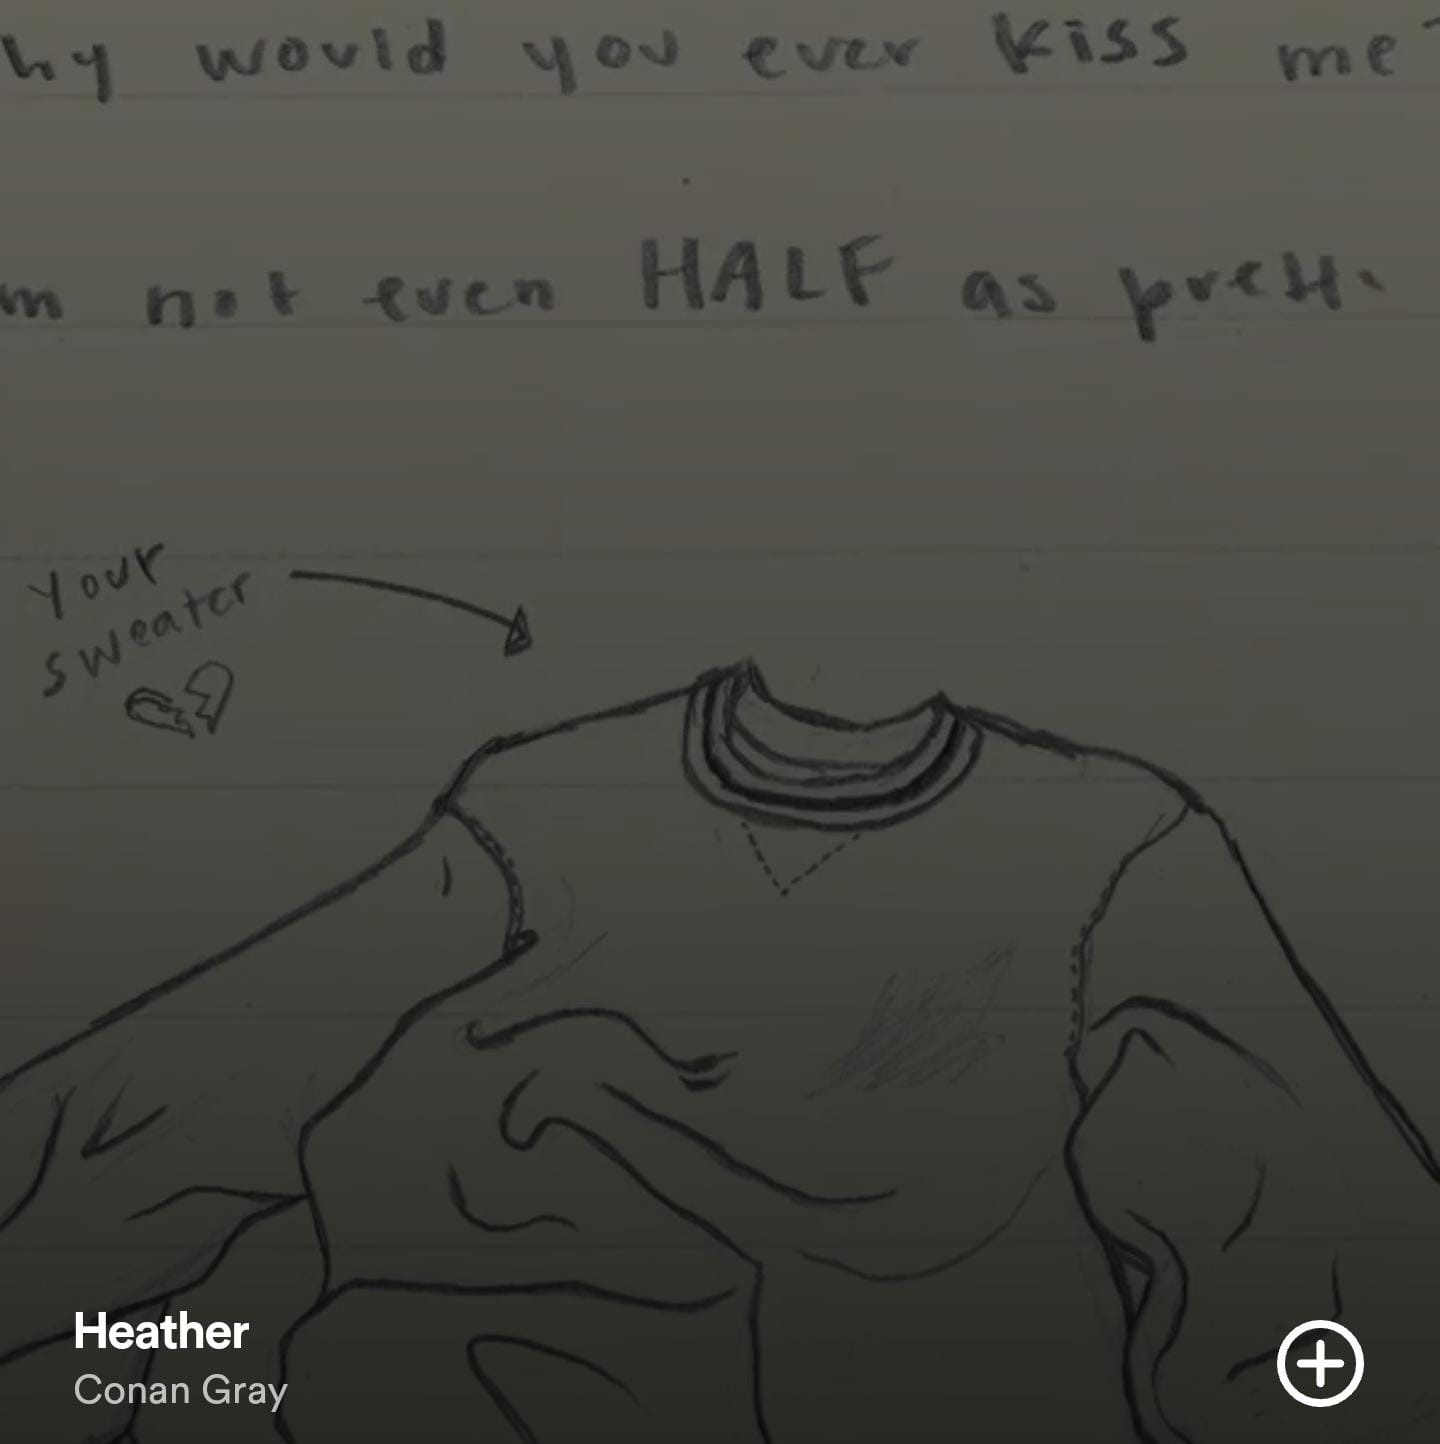 hy would you ever kiss me
m not even HALF as prett
your
sweater
Heather
Conan Gray